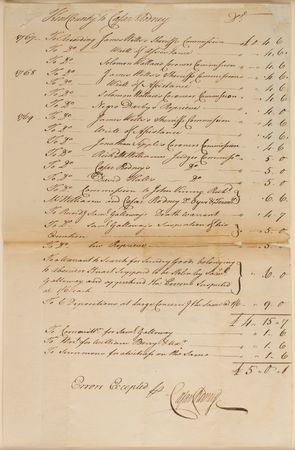 Kent County to Cæsar Rodney Dr
1767 To Recording James Wells's Sheriffs Commission £0. 4. 6
To Do Writ of Assistance 4. 6
To Do Solomon Wallace's Coroner Commission 4. 6
1768 To Do James Wells's Sheriffs Commission 4. 6
To Do Writ of Assistance 4. 6
To Do Solomon Wallace Coroner Commission 4. 6
To Do Negro Derby's Reprieve 4. 6
1769 To Do James Wells's Sheriffs Commission 4. 6
To Do Writ of Assistance 4. 6
To Do Jonathan Coroner Commission 4. 6
To Do Richd McWilliam Judges Commissn 5. 0
To Do Cæsar Rodney's Do 5. 0
To Do David Hall's Do 5. 0
To Do Commission to John Vining Richd
McWilliam and Cæsar Rodney 6. 6
To Record Saml Galloway's Death Warrant 4. 7
To Do Saml Galloway's
Execution 5. 0
To Do his Reprieve 5. 0
To a Warrant to Search for Goods belonging
to to be Stolen by Saml
Galloway and apprehend the Persons Suspected
6. 0
To 6 Depositions at large Concerng the same 1/6 9. 0
£4. 15. 7
To Committt for Saml Galloway 1. 6
To for William Berry 1. 6
To Summons for witnesses on the Same 1. 6
£5. 0. 1
Errors Excepted pr
Cæsar Rodney